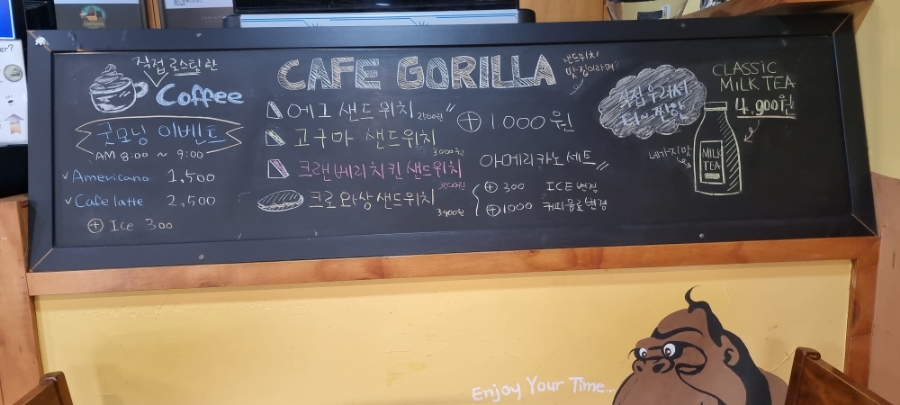 직접 로스팅 한
Coffee
굿모닝 이벤트
AM 8:00 ~ 9:00
Americano 1,500
Cafe latte 2,500
⊕ Ice 300
CAFE GORILLA
에그 샌드위치
고구마 샌드위치
3000원
크랜베리 치킨 샌드위치
크로와상 샌드위치
⊕ 1000원
아메리카노 세트
⊕ 300 ICE 변경
⊕ 1000 커피음료 변경
샌드위치
맛집이라며?
직접 우려서
더~ 진한
CLASSIC
MiLK TEA
4,900원
네가지맛
MILK
TEA
Enjoy Your Time...